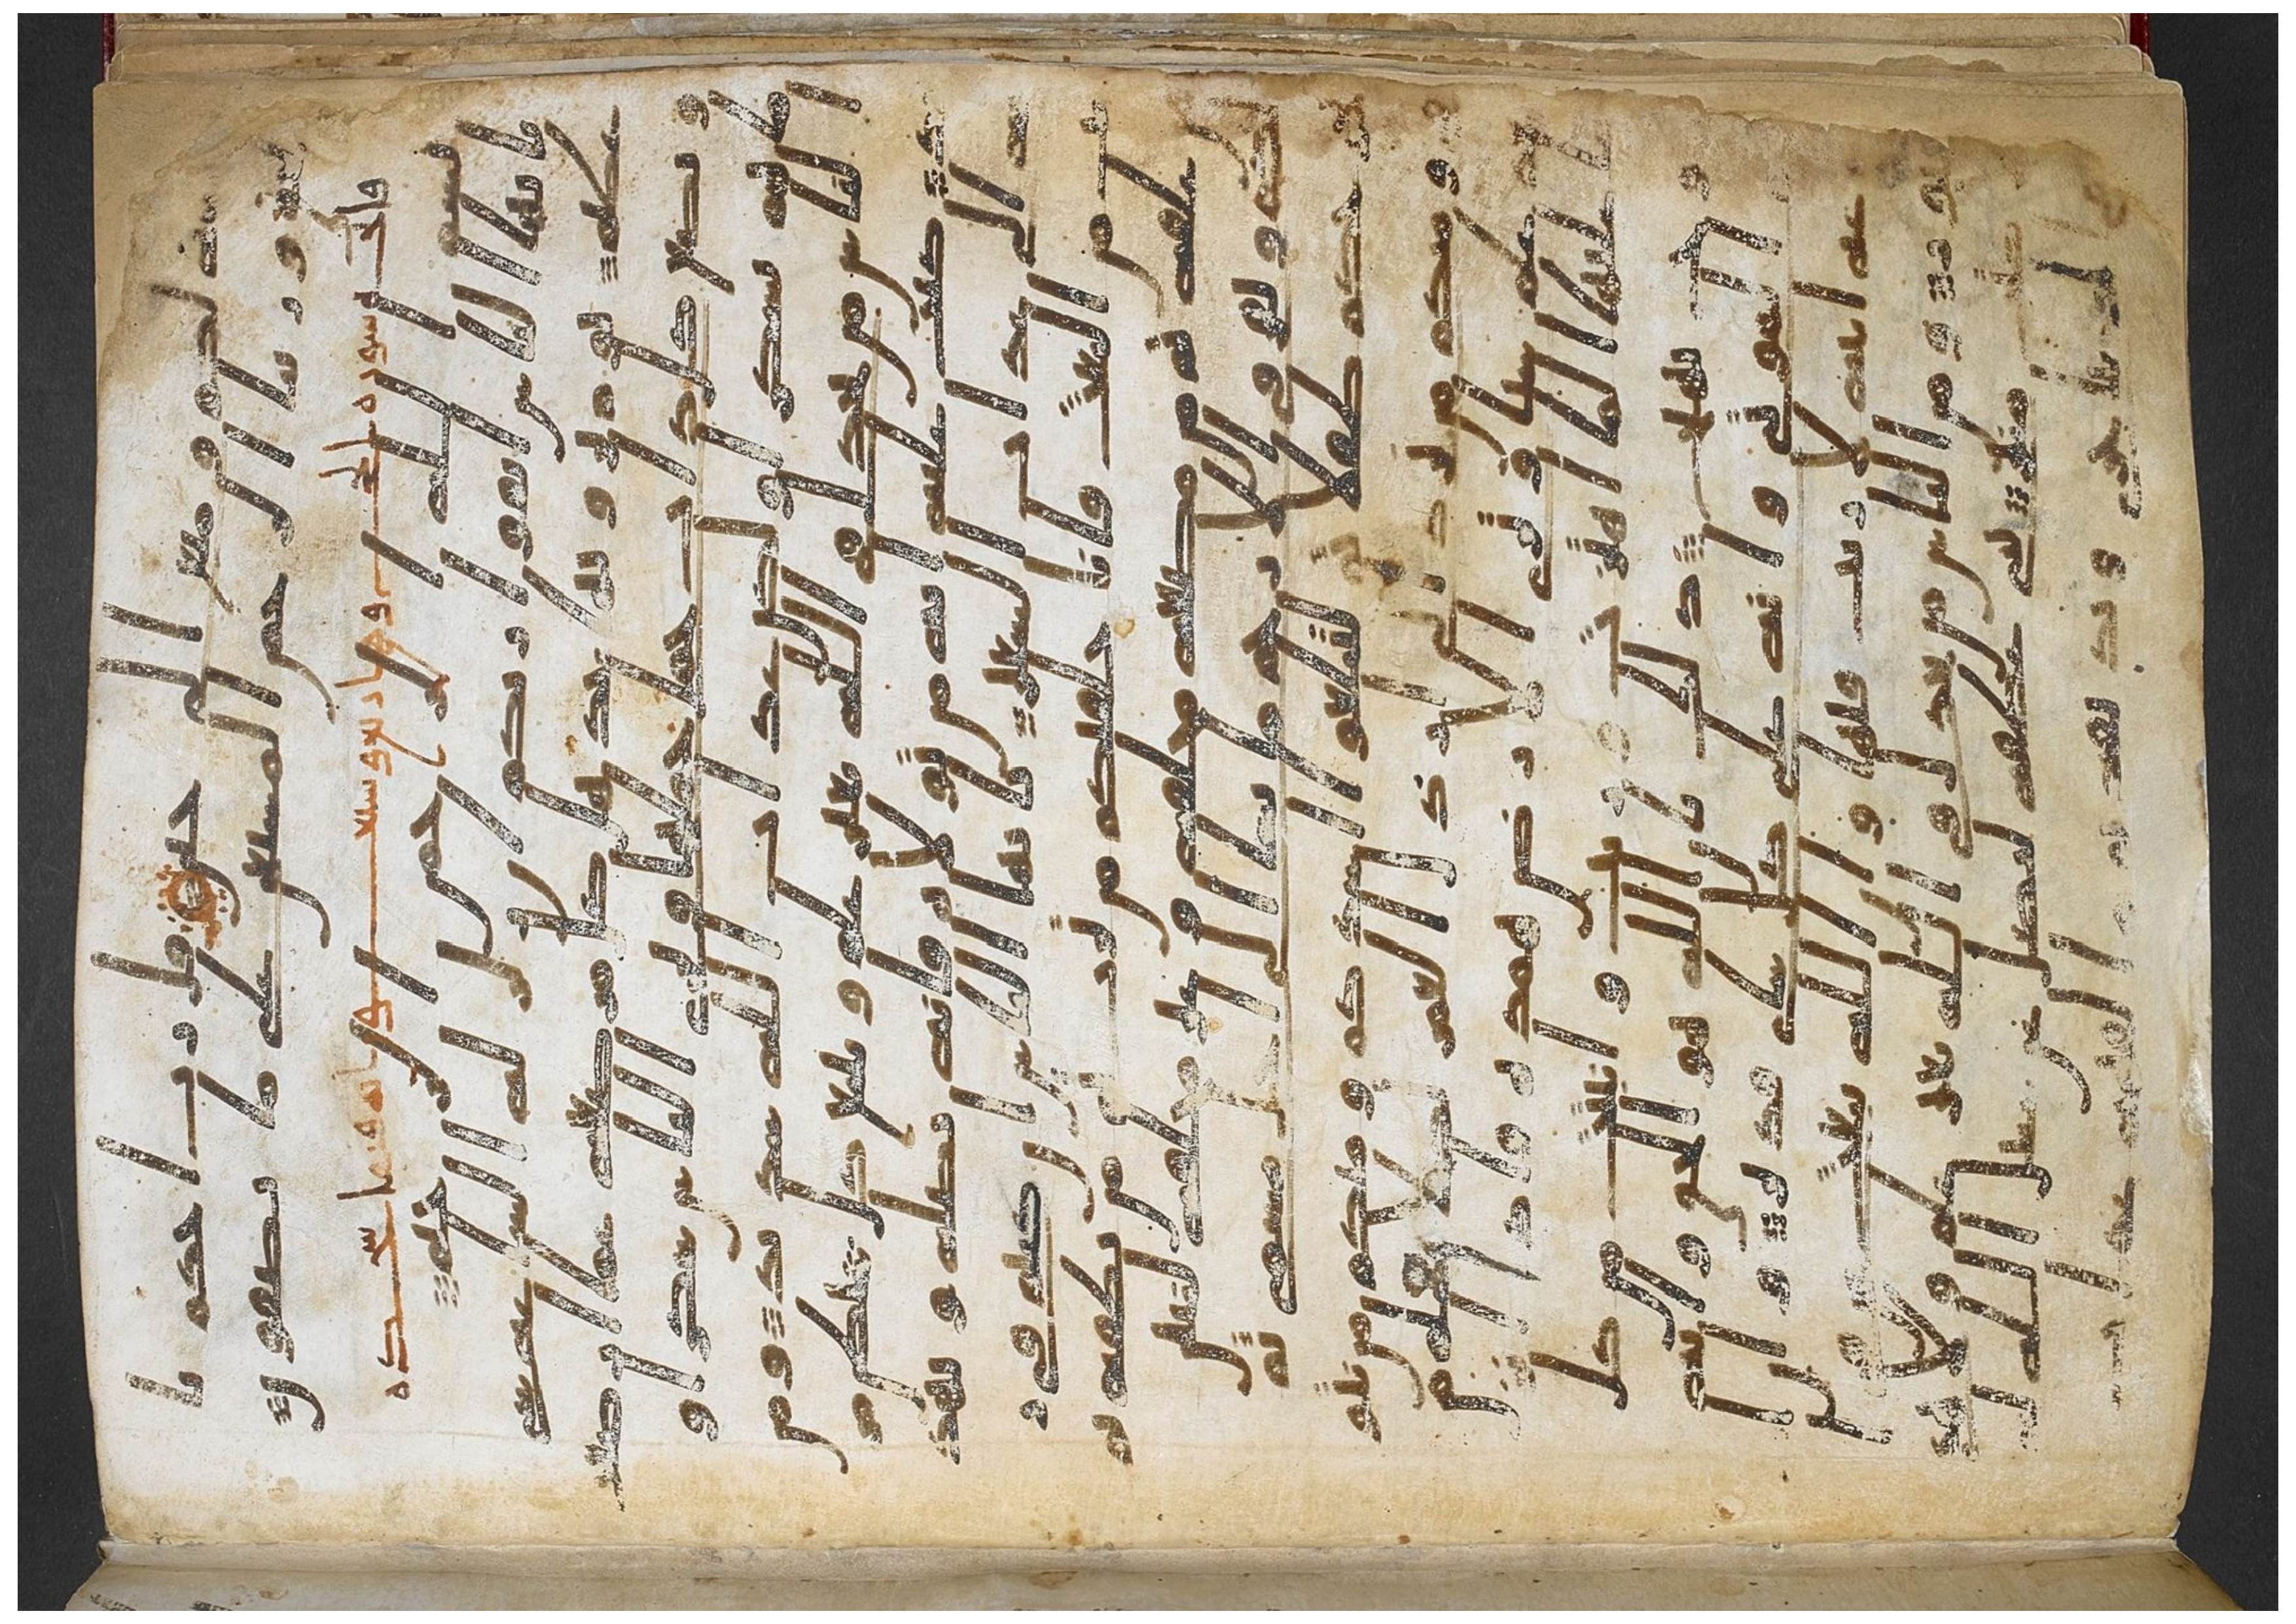 فتنه لكم ومتع الى حين قل رب احكم با
لحق وربنا الرحمن المستعن على ما تصفون
بسم الله الرحمن الرحيم
يايها الناس اتقوا ربكم ان زلزله الساعه شى
عظيم يوم ترونها تذهل كل مرضعه عما ارضعت
وتضع كل ذات حمل حملها وترى الناس سكرى و
ما هم بسكرى ولكن عذاب الله شديد ومن
الناس من يجدل فى الله بغير علم ويتبع كل شيطن مر
يد كتب عليه انه من تولاه فانه يضله ويهد
يه الى عذاب السعير يايها الناس ان كنتم فى ر
يب من البعث فانا خلقنكم من تراب ثم من نطفه
ثم من علقه ثم من مضغه مخلقه وغير مخلقه لنبين
لكم ونقر فى الارحام ما نشا الى اجل مسمى ثم
نخرجكم طفلا ثم لتبلغوا اشدكم ومنكم من يتو
فى ومنكم من يرد الى ارذل العمر لكيلا يعلم من
بعد علم شيا وترى الارض هامده فاذا انز
لنا عليها الما اهتزت وربت وانبتت من كل
زوج بهيج ذلك بان الله هو الحق وانه
يحى الموتى وانه على كل شى قدير وان
الساعه اتيه لا ريب فيها وان الله يبعث من
فى القبور ومن الناس من يجدل فى الله بغير علم ولا هد
ى ولا كتب منير ثنى عطفه ليضل عن سبيل الله
له فى الدنيا خزى ونذيقه يوم القيمه عذاب